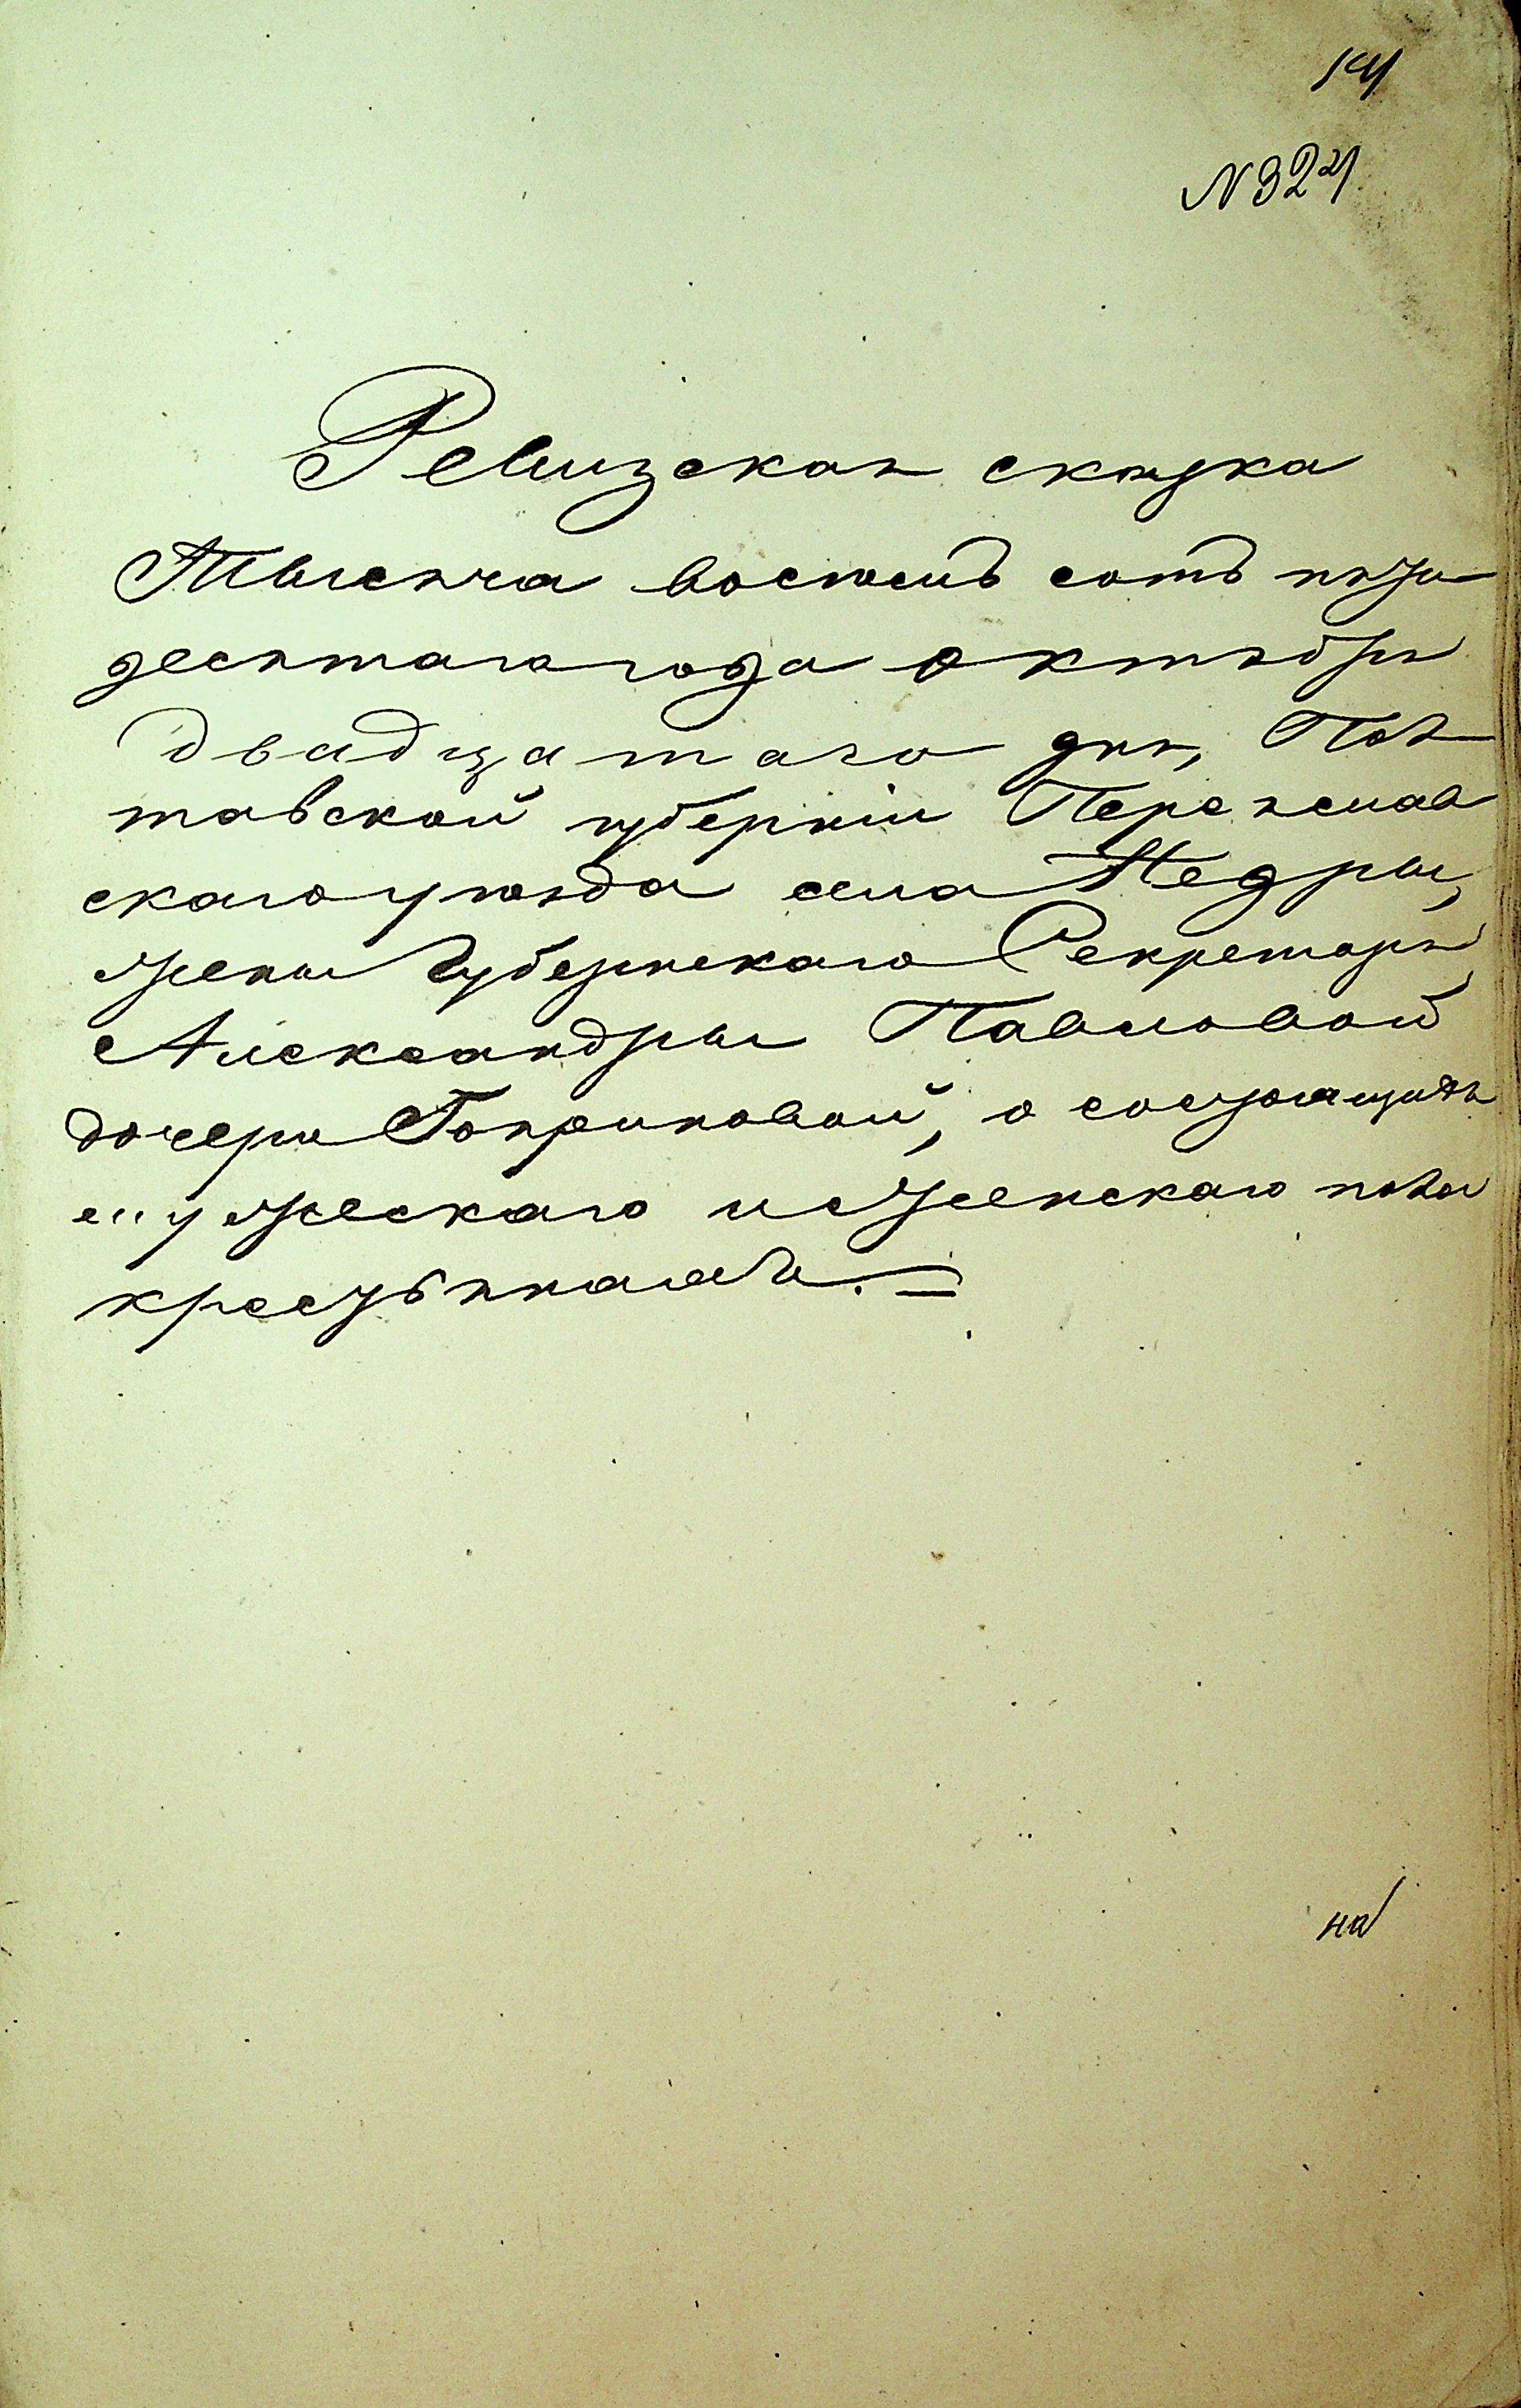 N 324
Ревизская сказка
Тысяча восемь сотъ пяти
десятаго года октября
двадцатаго дня, Пол
тавской губерніи Переяслав
скаго уѣзда села Недры,
жены Губернскаго Секретаря
Александры Павловой
дочери, о состоящихъ
мужескаго и женскаго пола
крестьянахъ.=
на